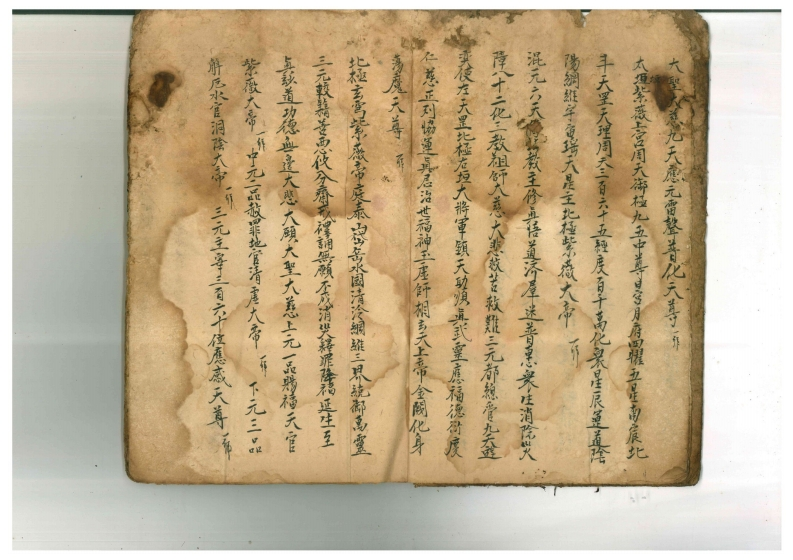 大聖九天應元雷聲普化天尊
太垣紫薇上宮周天御極九五中尊日宮月府四曜五星南宸北
斗天罡天理周天三百六十五經度百千萬化衆星辰運道陰
陽綱維宰天星主北極紫薇大帝
混元六天教主修真悟道濟羣迷普惠衆生消除災
障八十二化三教祖師大慈大悲救苦救難三元都總管九天遊
奕使左天罡北極右垣大將軍鎮天助順真武靈應福德衍慶
仁慈正烈協運真君治世福神玉虛師相玄天上帝金闕化身
蕩魔天尊
北極玄宮紫薇帝庭泰岳水國清冷綱維三界統御萬靈
三元較籍善惡攸分齋戒禮誦無願不成消災赦罪降福延生至
真妙道功德無邊大悲大願大聖大慈上元一品賜福天官
紫薇大帝 中元二品赦罪地官清虛大帝 下元三品
解厄水官洞陰大帝 三元主宰三百六十位應感天尊